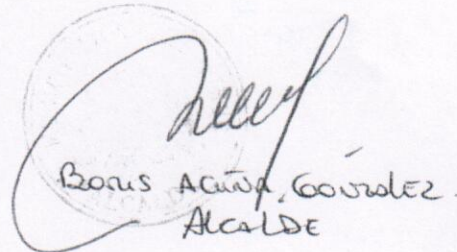 Boris Acuña González.
Alcalde